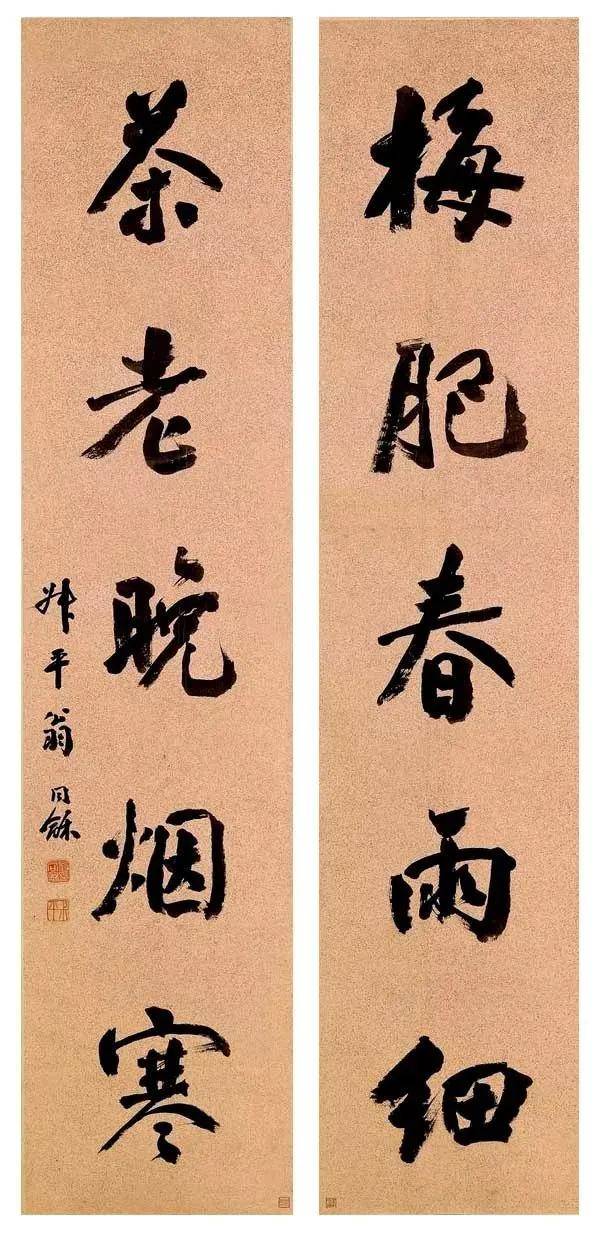 梅肥春雨细
茶老晚烟寒
叔平翁同龢